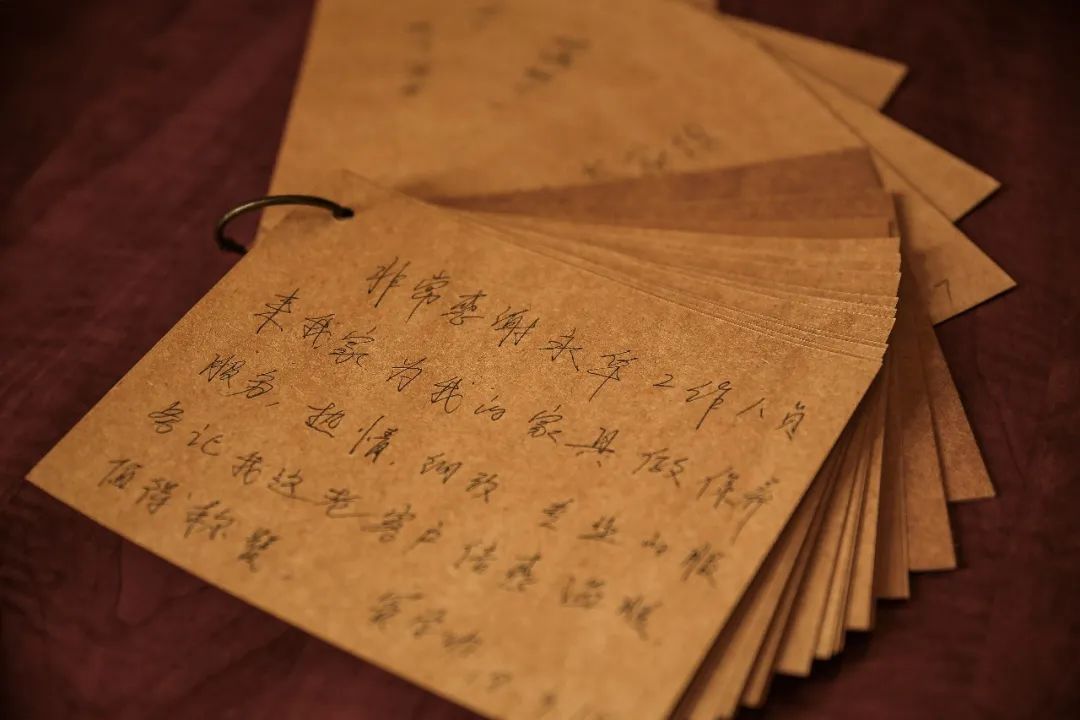 非常感谢永华工作人员
来我家为我的家具做保养
服务,热情.细致 专业的服
务让我这老客户倍感温暖
值得称赞.